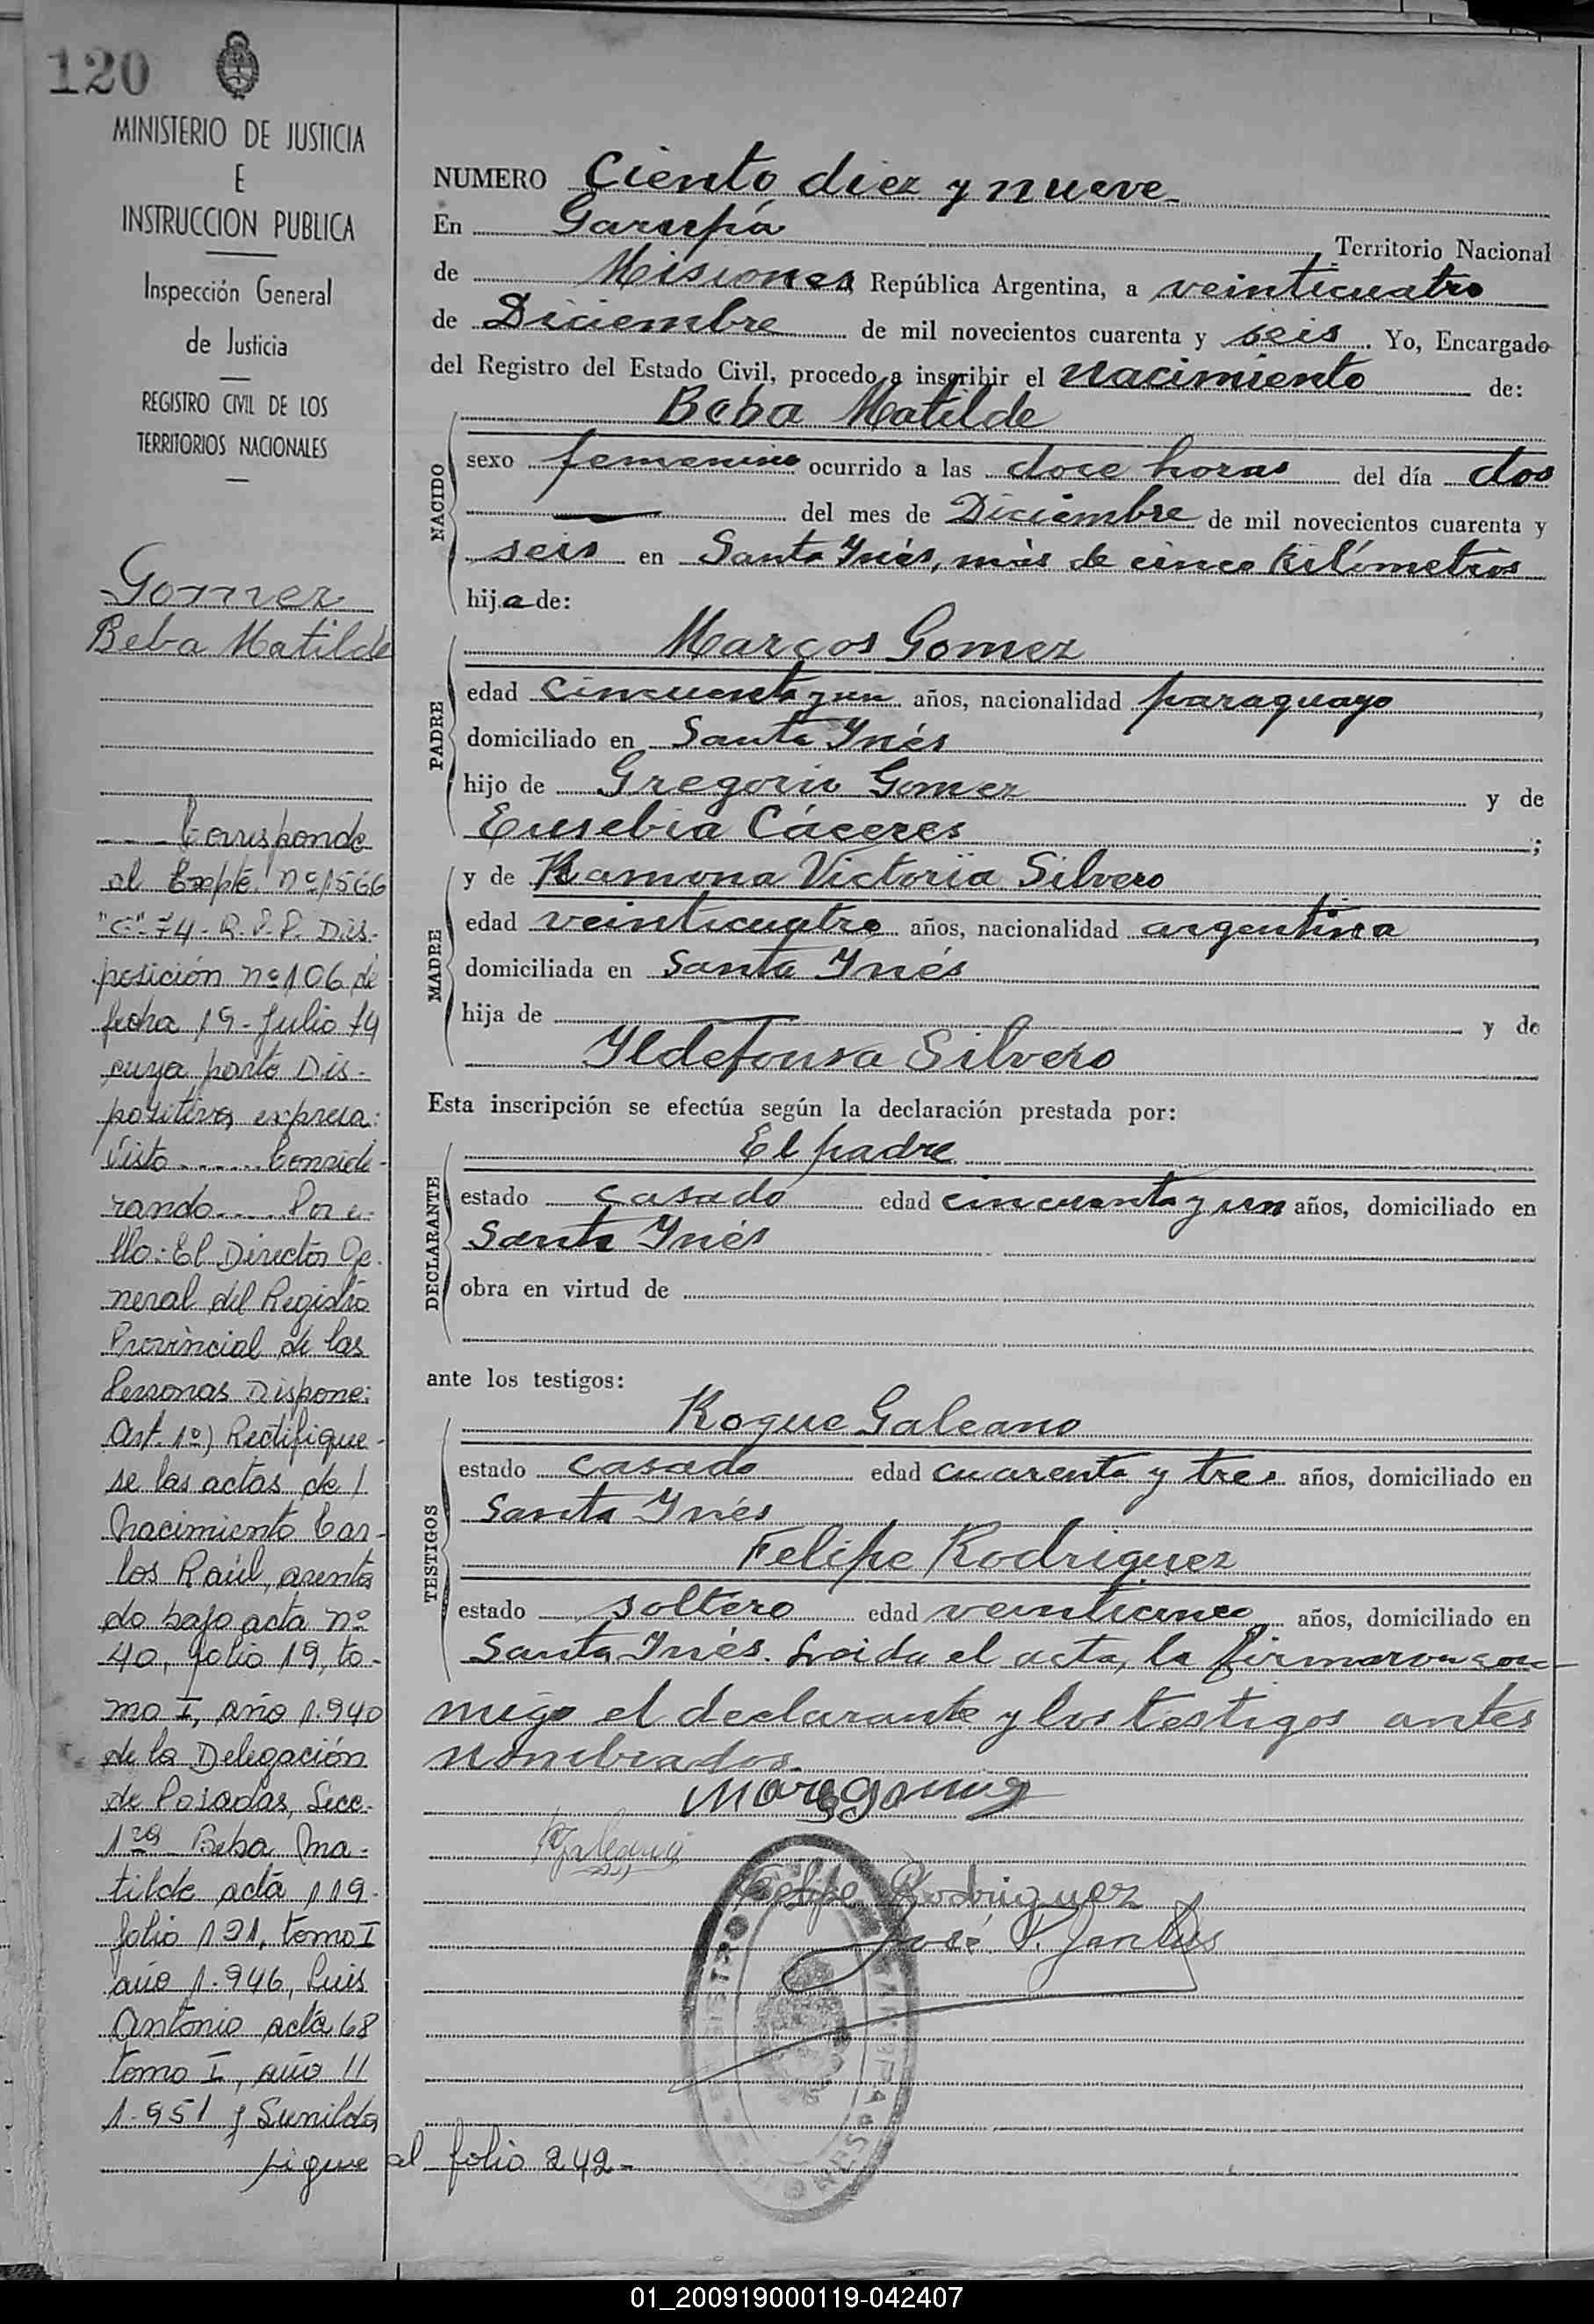 120
MINISTERIO DE JUSTICIA
E
INSTRUCCION PUBLICA
Inspección General
de Justicia
REGISTRO CIVIL DE LOS
TERRITORIOS NACIONALES
Gomez
Beba Matilde
Corresponde
al Expte. nº 1566
"C"-74-R.P.P. Dis-
posición nº 106 de
fecha 19-Julio 74
cuya parte Dis-
positiva expresa:
Visto ....... Conside-
rando ..... Por e-
llo: El Director Ge-
neral del Registro
Provincial de las
Personas Dispone:
Art. 1º) Rectifique-
se las actas de /
Nacimiento Car-
los Raúl, asenta
do bajo acta nº
40, folio 19, to-
mo I, año 1.940
de la Delegación
de Posadas, Secc.
1ra Beba Ma-
tilde acta 119
folio 121, tomo I
año 1.946, Luis
Antonio acta 68
tomo I, año //
1.951 y Sunilda
sigue al folio 242-
NUMERO Ciento diez y nueve
En Garupá Territorio Nacional
de Misiones República Argentina, a veinticuatro
de Diciembre de mil novecientos cuarenta y seis. Yo, Encargado
del Registro del Estado Civil, procedo a inscribir el nacimiento de:
NACIDO
Beba Matilde
sexo femenino ocurrido a las doce horas del día dos
del mes de Diciembre de mil novecientos cuarenta y
seis en Santa Ynés, más de cinco kilómetros
hija de:
PADRE
Marcos Gomez
edad cincuenta y un años, nacionalidad paraguayo,
domiciliado en Santa Ynés
hijo de Gregorio Gomez y de
Eusebia Cáceres;
MADRE
y de Ramona Victoria Silvero
edad veinticuatro años, nacionalidad argentina,
domiciliada en Santa Ynés
hija de y de
Yldefonsa Silvero
Esta inscripción se efectúa según la declaración prestada por:
DECLARANTE
El padre
estado casado edad cincuenta y un años, domiciliado en
Santa Ynés
obra en virtud de
ante los testigos:
TESTIGOS
Roque Galeano
estado casado edad cuarenta y tres años, domiciliado en
Santa Ynés
Felipe Rodriguez
estado soltero edad veinticinco años, domiciliado en
Santa Ynés. Leida el acta, la firmaron con-
migo el declarante y los testigos antes
nombrados.
Galeano
Felipe Rodriguez
José
01_200919000119-042407